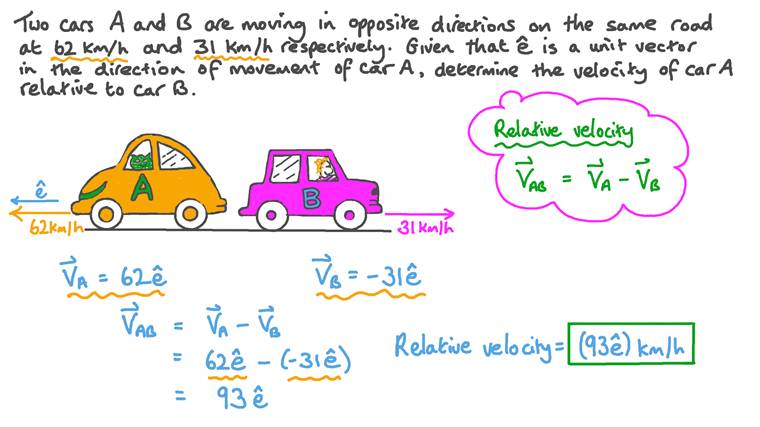 Two cars A and B are moving in opposite directions on the same road
at 62 km/h and 31 km/h respectively. Given that ê is a unit vector
in the direction of movement of car A, determine the velocity of car A
relative to car B.
Relative velocity
V⃗_AB = V⃗_A − V⃗_B
ê
A
B
62km/h
31km/h
V⃗_A = 62ê
V⃗_B = −31ê
V⃗_AB = V⃗_A − V⃗_B
= 62ê − (−31ê)
= 93ê
Relative velocity = (93ê) km/h